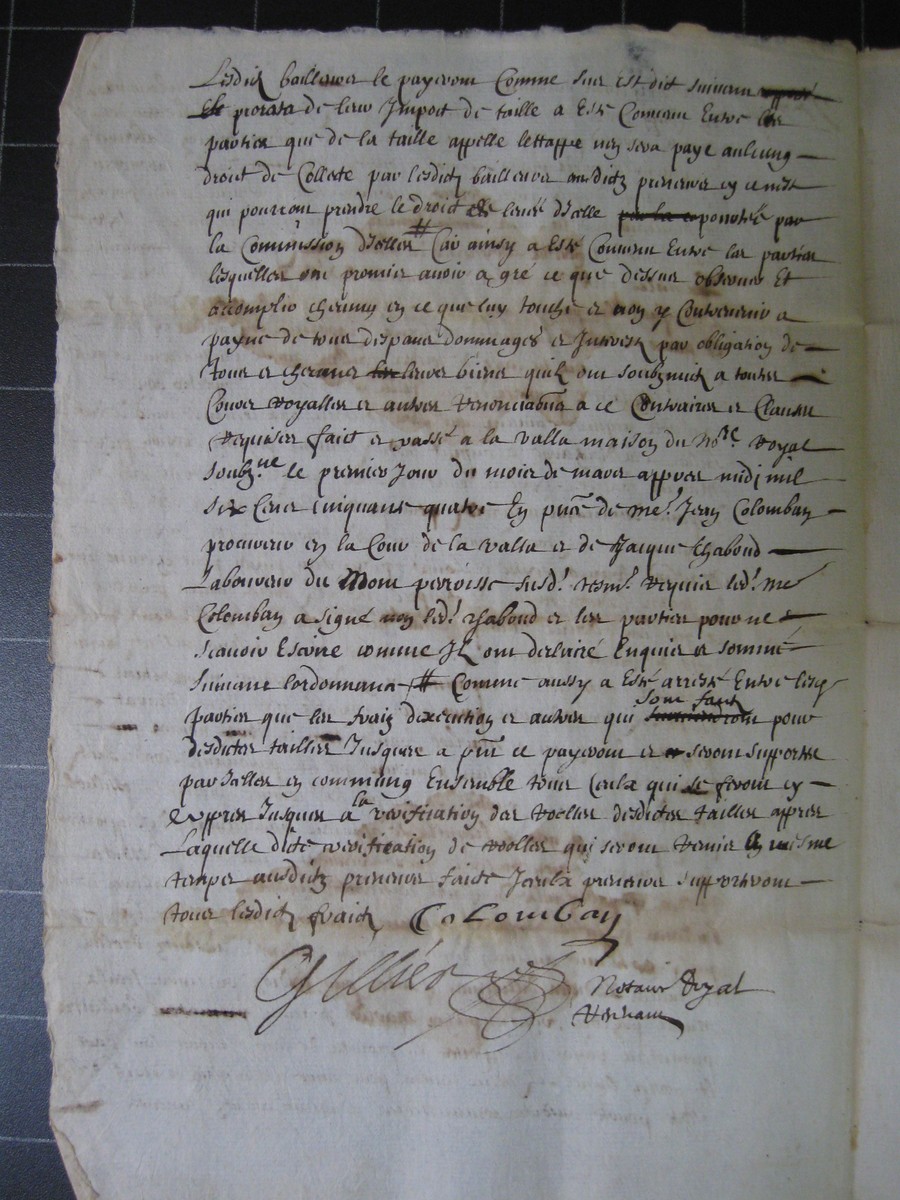 Lesdictz bailleurs le payeront Comme sus est dict suivant
prorata de leur Impost de taille a Esté Convenu Entre les
parties que de la taille appelle lettappe n'en sera payé aulcung
droict de Collecte par lesdictz bailleurs ausdictz preneurs
qui pourront prendre le droict de leveé d'Icelle par
la Commission d'Icelles # Car ainsy a Esté Convenu Entre les parties
lesquelles ont promis avoir a gré ce que dessus observer Et
accomplir chacung en ce que luy touche et non y Contrevenir a
payne de tous despans dommages et Interestz par obligation de
tous et chacuns leurs biens quilz ont soubzmis a toutes
Cours royalles et autres renonciaōns a ce Contraires et Clauses
requises faict et passé a la valla maison du Nore. royal
soubz.ne le premier Jour du mois de mars appres midi mil
six Cens cinquante quatre En pn̄ce de me. Jean Colomban
procureur en la Cour de la valla et de Jacque Chaboud
Laboureur du parroisse susd. tesm. requis led. me
Colomban a signé non led. Chaboud et les parties pour ne
scavoir Escrire comme Ilz ont declairé Enquis et sommé
suivant l'ordonnance # Comme aussy a Esté arresté Entre lesd
parties que les fraiz d'execution et autres qui sont faictz pour
desdictes tailles Jusques a pn̄t ce payeront et seront supportés
par Icelles en commung Ensemble tous Ceulx qui se feront cy
appres Jusques a la verification des roolles desdictes tailles appres
Laquelle dicte verification de roolles qui seront remis En mesme
temps ausdictz preneurs faicte Iceulx preneurs supporteront
tous lesdictz fraictz Colomban
Gillier Notaire Royal